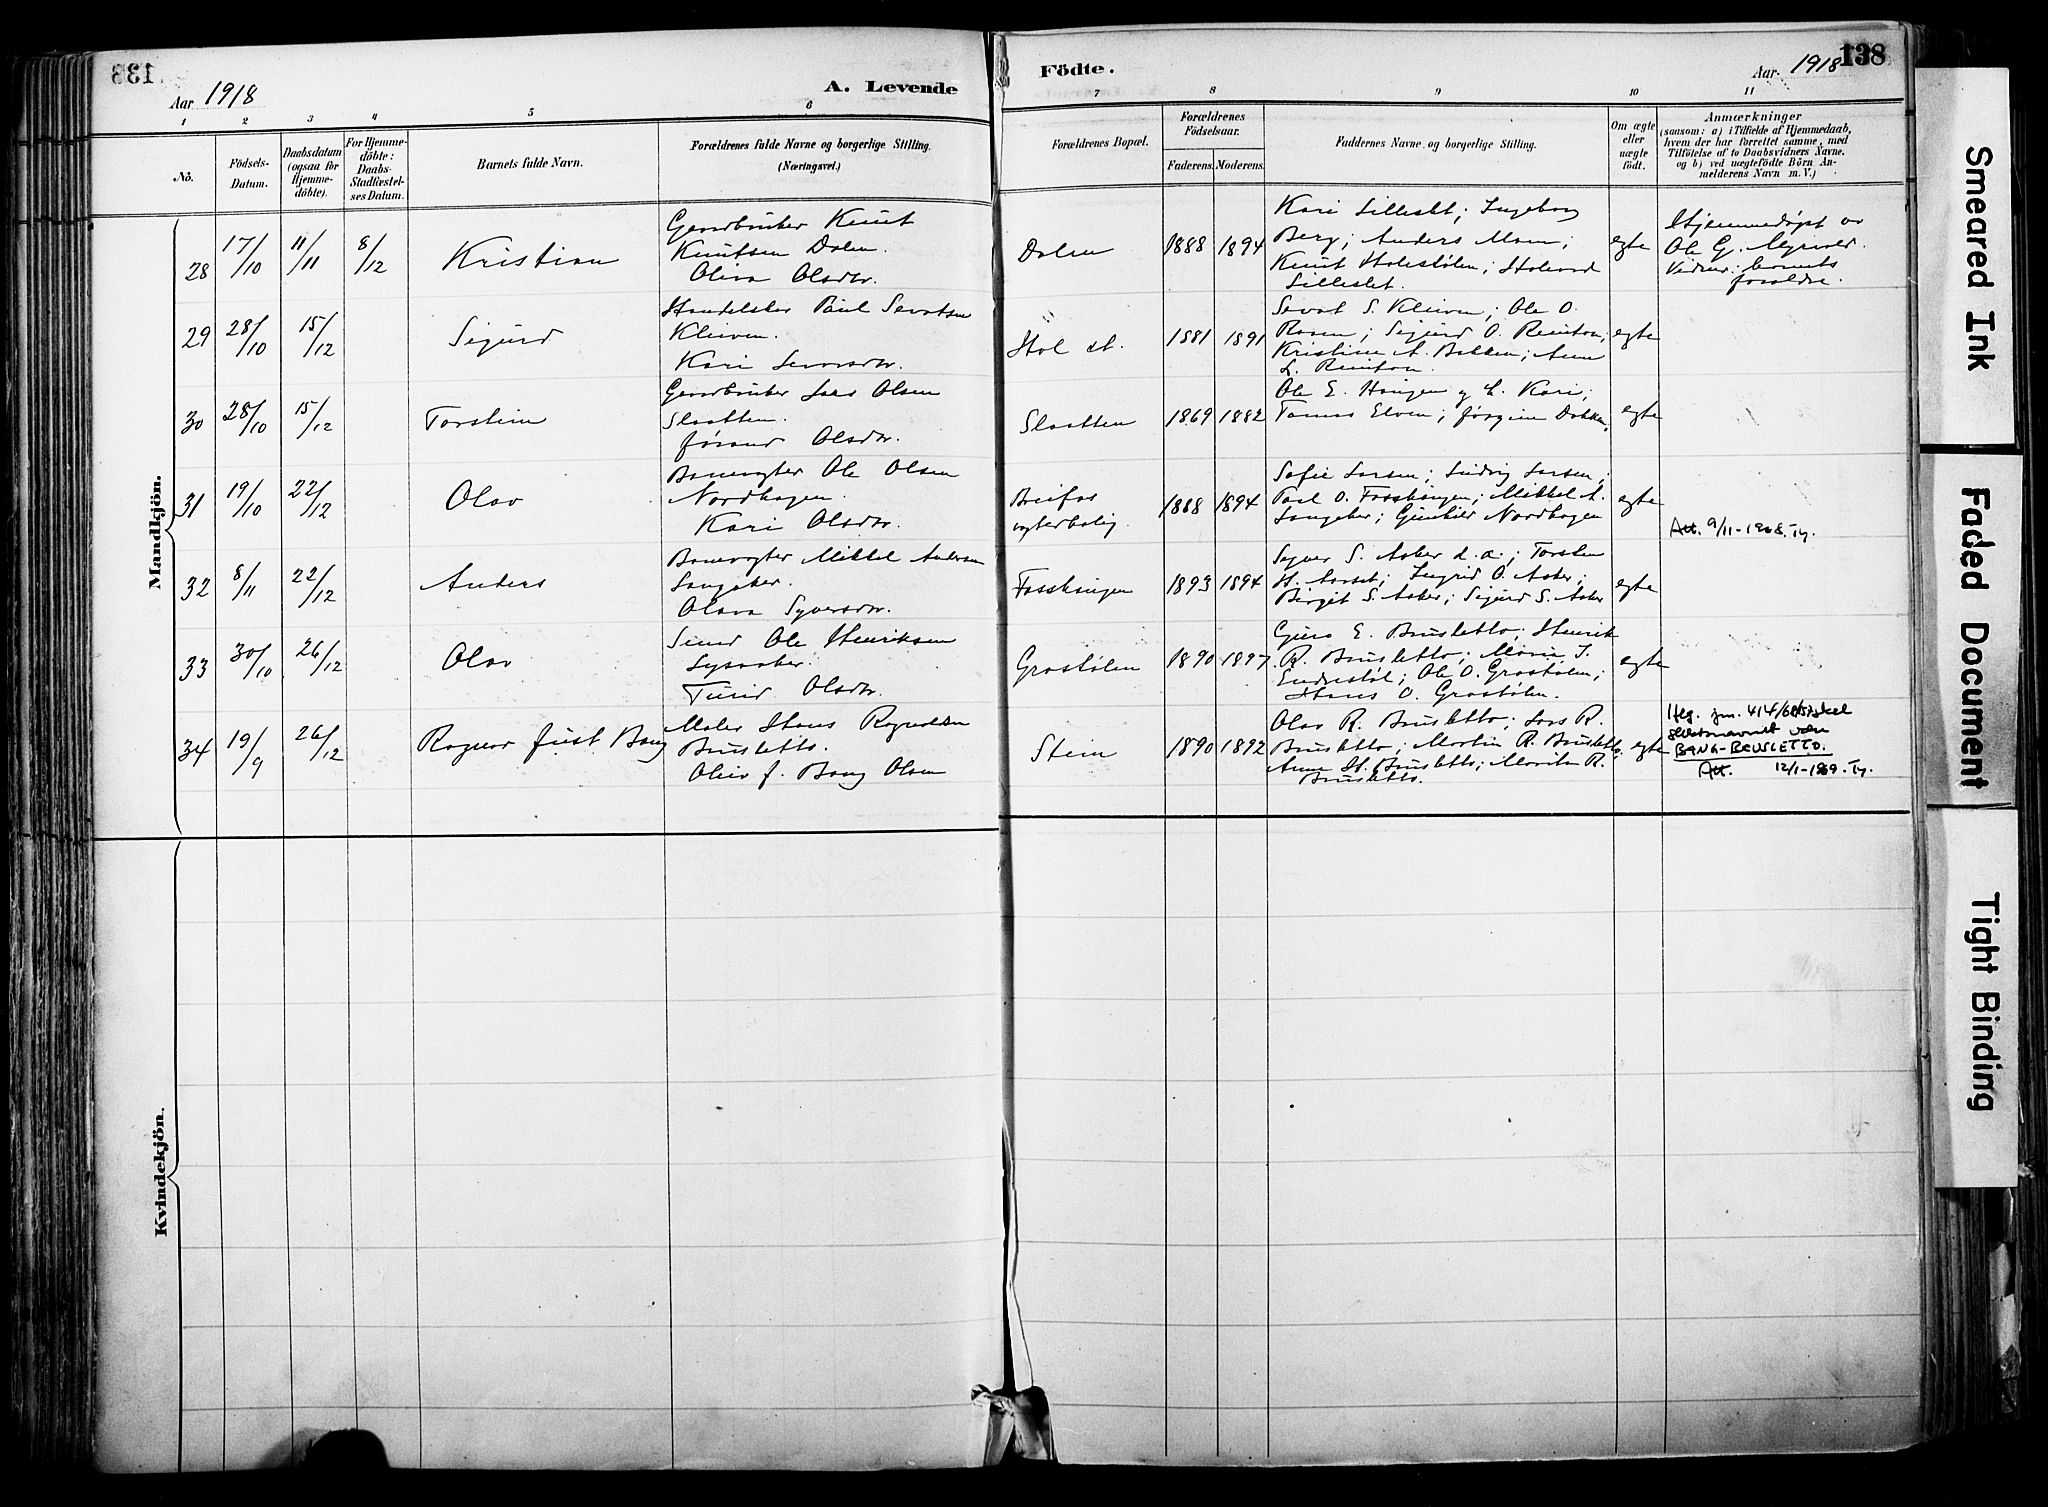 138
Aar 1918
A. Levende
Födte.
Aar. 1918
138
1 2 3 4 5 6 7 8 9 10 11
No.
Födsels-
Datum.
Daabsdatum
(ogsaa for
Hjemme-
döbte).
For Hjemme-
döbte:
Daabs-
Stadfæstel-
ses Datum.
Barnets fulde Navn.
Forældrenes fulde Navne og borgerlige Stilling.
(Næringsvei.)
Forældrenes Bopæl.
Forældrenes
Födselsaar.
Faderens. Moderens.
Faddernes Navne og borgerlige Stilling.
Om ægte
eller
uægte
födt.
Anmærkninger
(saasom: a) i Tilfælde af Hjemmedaab,
hvem der har forrettet samme, med
Tilföielse af to Daabsvidners Navne,
og b) ved uægtefödte Börn An-
melderens Navn m. V.)
Mandkjön.
28 17/10 11/11 8/12 Kristian
Gaardbruker Knut
Knutsen Dalen.
Oliva Olsdtr.
Dalen 1888 1894
Kari Lilleslet; Ingeborg
Berg; Anders Moen;
Knut Holestølen; Halvard
Lilleslet.
egte
Hjemmedøpt av
Ole G. Myrvold.
Vidner: barnets
foreldre.
29 28/10 15/12 Sigurd
Handelsber Paul Sevatsen
Kleiven.
Kari Larsdtr.
Hol st. 1881 1891
Sevat S. Kleiven; Ole O.
Roen; Sigurd O. Reinton;
Kristine A. Bakken; Anne
L. Reinton.
egte
30 28/10 15/12 Torstein
Gaardbruker Lars Olsen
Slaatten.
Jørand Olsdtr.
Slaatten 1869 1882
Ole E. Haugen og h. Kari;
Tomas Elven; Jørgine Dokken.
egte
31 19/10 22/12 Olav
Banevogter Ole Olsen
Nordhagen.
Kari Olsdtr.
Breifos
vogterbolig. 1888 1894
Sofie Larsen; Ludvig Larsen;
Paul O. Fosshaugen; Mikkel A.
Langeker; Gunhild Nordhagen
egte
Att. 9/11-1968. Ty.
32 8/11 22/12 Anders
Banevogter Mikkel Andersen
Langeker.
Olava Syversdtr.
Fosshaugen 1893 1894
Syver S. Aaker d.æ.; Torsten
H. Aarset; Ingrid O. Aaker;
Birgit S. Aaker; Sigurd S. Aaker
egte
33 30/10 26/12 Olav
Smed Ole Henriksen
Lysaaker.
Turid Olsdtr.
Graastølen 1890 1897
Guro E. Brusletto; Henrik
R. Brusletto; Marie T.
Endrestøl; Ole O. Graastølen;
Hans O. Graastølen.
egte
34 19/9 26/12 Ragnar Just Bang
Maler Hans Ragnvaldsen
Brusletto.
Oliv J. Bang Olsen
Stein 1890 1892
Olav R. Brusletto; Lars R.
Brusletto; Martin R. Brusletto;
Anne H. Brusletto; Marit R.
Brusletto.
egte
slektsnavnet være
BANG-BRUSLETTO.
Att. 12/1-1969. Ty.
Kvindekjön.
Smeared Ink
Faded Document
Tight Binding